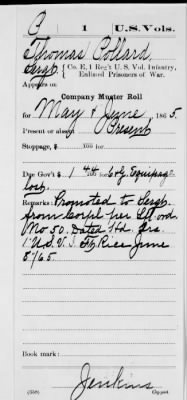 C 1 U.S. Vols.
Thomas Pollard,
Sergt, Co. E, 1 Reg't U. S. Vol. Infantry,
Enlisted Prisoners of War.
Appears on
Company Muster Roll
for May & June, 1865.
Present or absent Present
Stoppage, $ 100 for
Due Gov't $ 1 44/100 for C & G. Equipage
lost.
Remarks: Promoted to Sergt.
from Corpl per S.O.
No 50. Dated Hd. Qrs.
1 U.S.V.I. Ft. Rice June
8/65.
Book mark:
Jenkins
(358) Copyist.